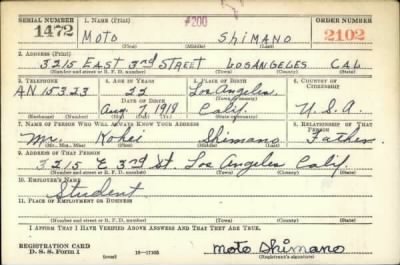 SERIAL NUMBER 1. NAME (Print) #200 ORDER NUMBER
1472 MOTO SHIMANO 2102
(First) (Middle) (Last)
2. ADDRESS (Print)
3215 EAST 3rd STREET LOS ANGELES CAL
(Number and street or R. F. D. number) (Town) (County) (State)
3. TELEPHONE 4. AGE IN YEARS 5. PLACE OF BIRTH 6. COUNTRY OF CITIZENSHIP
AN 15323 22 Los Angeles
DATE OF BIRTH (Town) (County)
Aug 7, 1918 Calif. U.S.A.
(Exchange) (Number) (Mo.) (Day) (Yr.) (State) (Country)
7. NAME OF PERSON WHO WILL ALWAYS KNOW YOUR ADDRESS 8. RELATIONSHIP OF THAT PERSON
Mr. Kohei Shimano Father
(Mr., Mrs., Miss) (First) (Middle) (Last)
9. ADDRESS OF THAT PERSON
3215 E 3rd St. Los Angeles Calif.
(Number and street or R. F. D. number) (Town) (County) (State)
10. EMPLOYER'S NAME
Student
11. PLACE OF EMPLOYMENT OR BUSINESS
(Number and street or R. F. D. number) (Town) (County) (State)
I AFFIRM THAT I HAVE VERIFIED ABOVE ANSWERS AND THAT THEY ARE TRUE.
REGISTRATION CARD
D. S. S. Form 1 (over) Moto Shimano
(Registrant's signature)